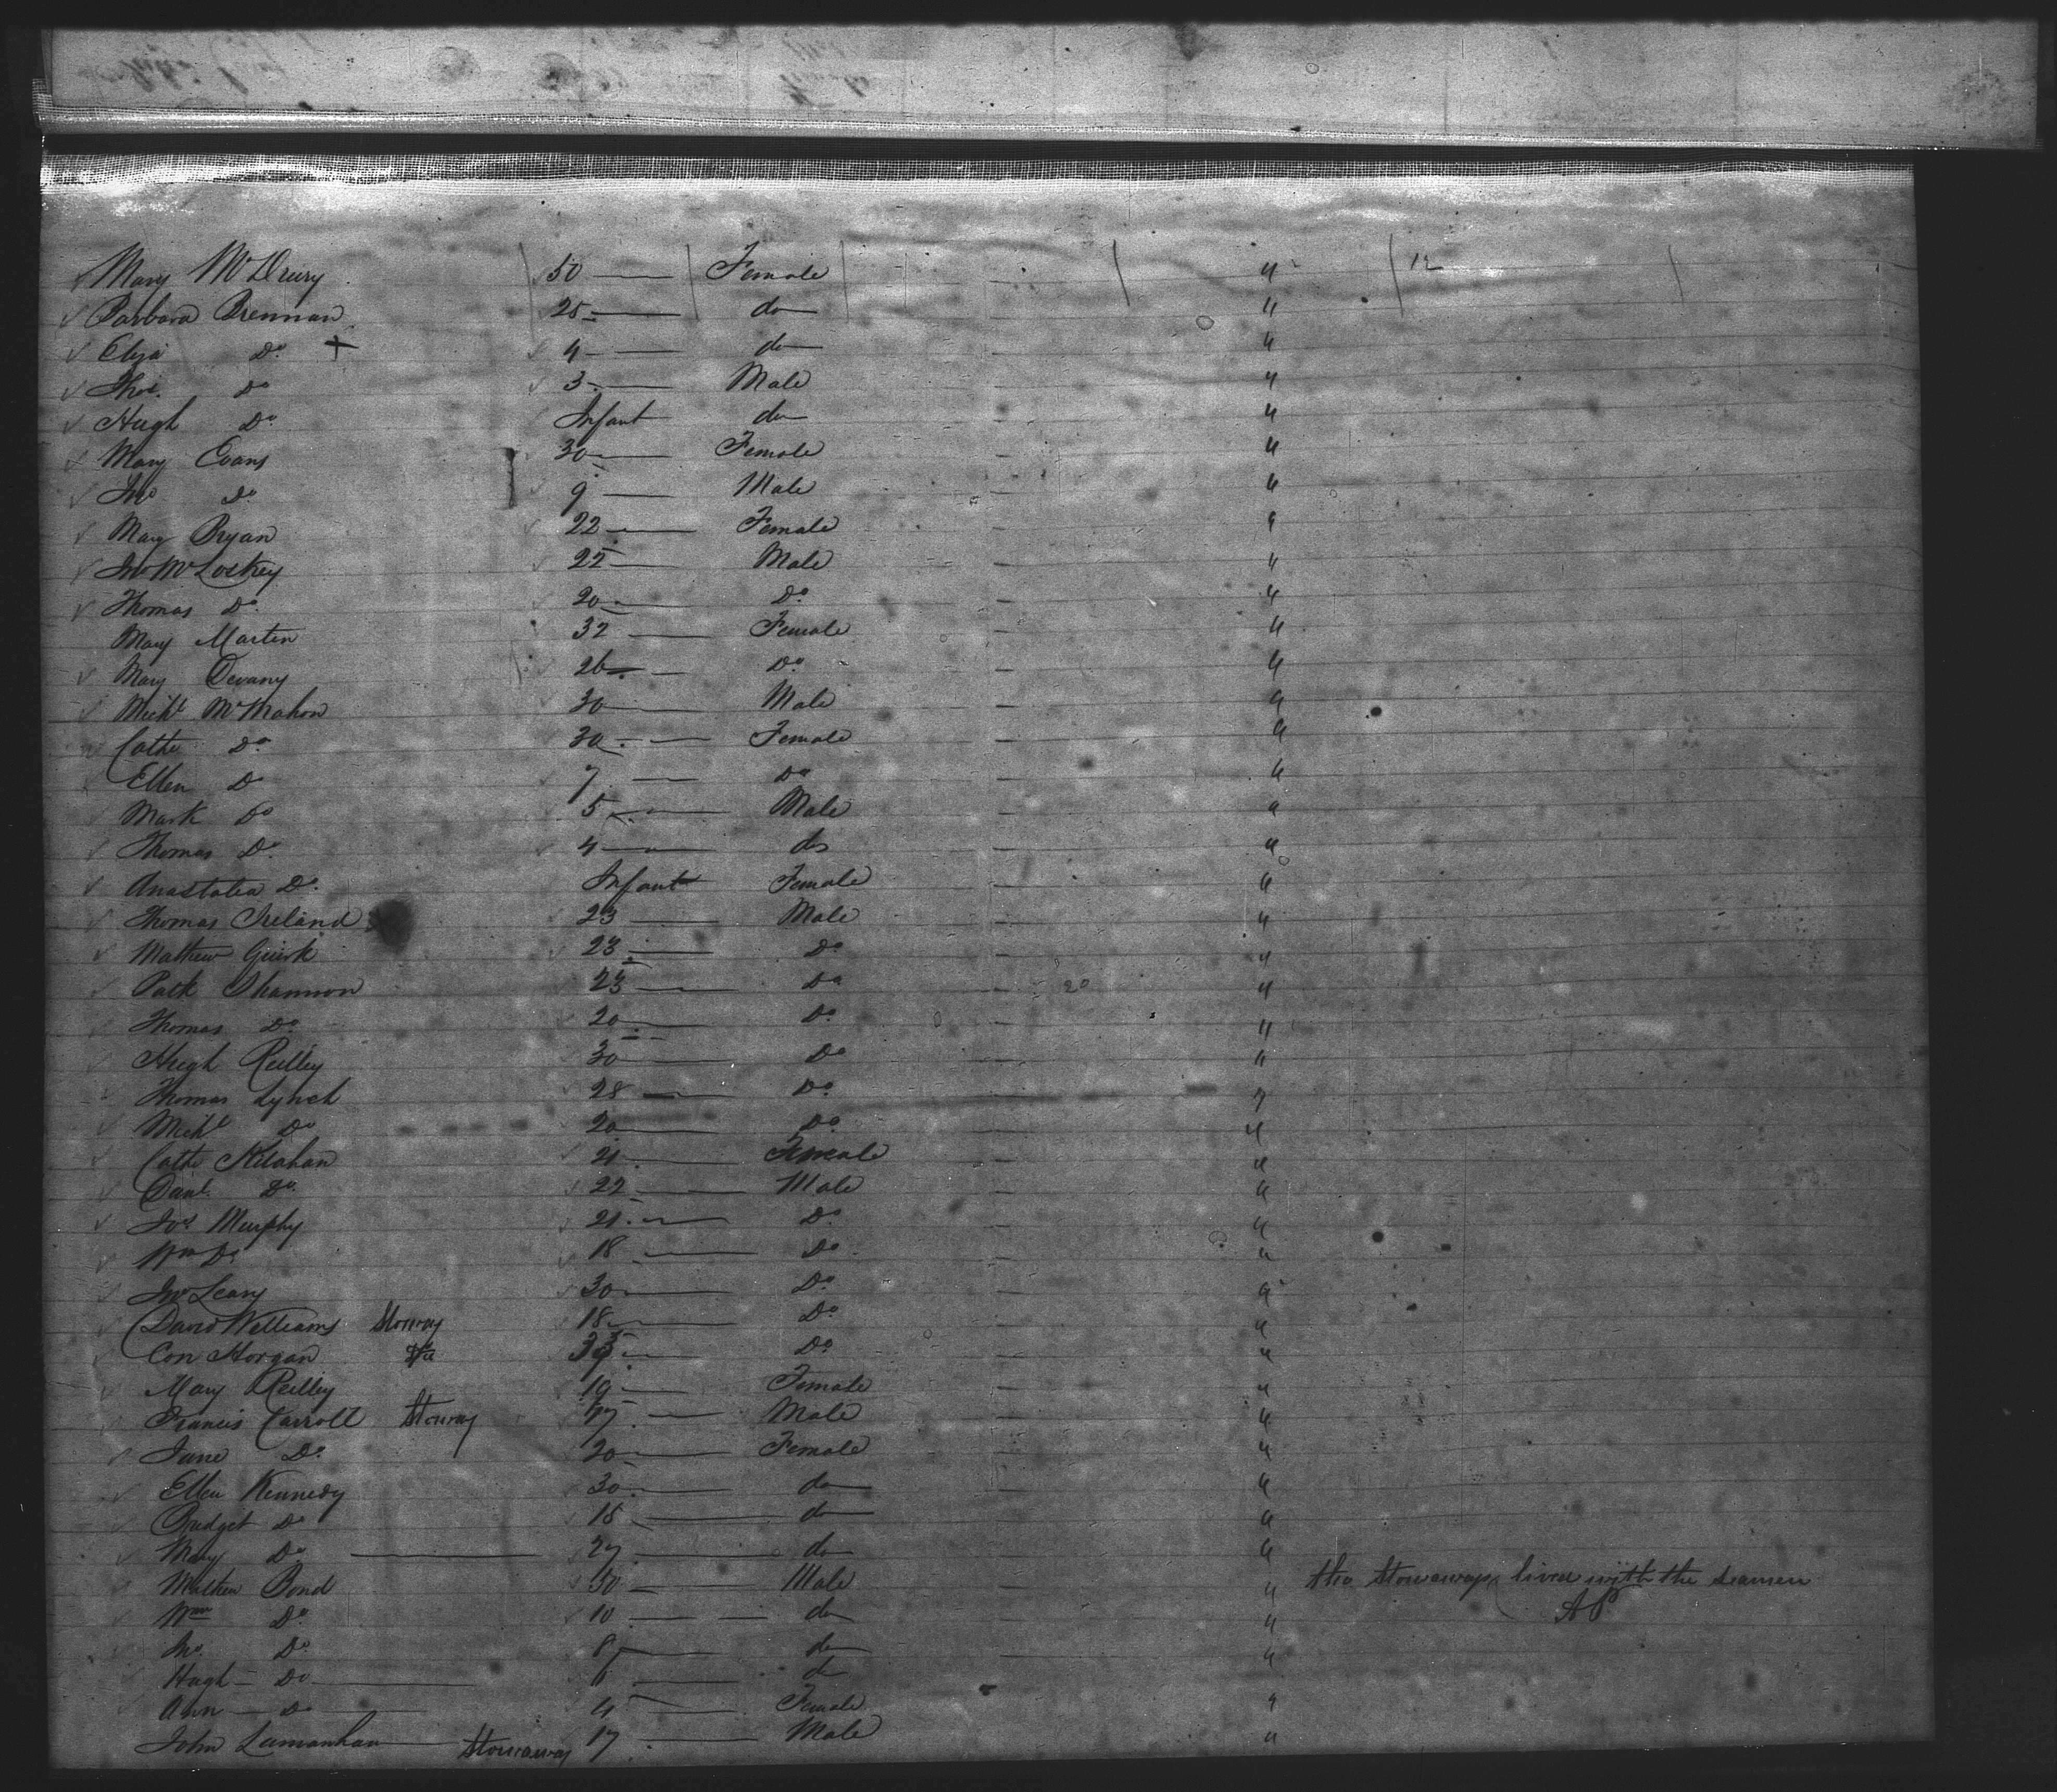 Mary McDrury 50 Female " 12
Barbara Brennan 25 do "
Eliza Do + 4 do "
Thos. Do 3 Male "
Hugh Do Infant do "
Mary Evans 30 Female "
Jno Do 9 Male "
Mary Ryan 22 Female "
Jno McLoskey 22 Male "
Thomas Do 20 Do "
Mary Martin 32 Female "
Mary Devany 26 Do "
Michl McMahon 30 Male "
Cathe Do 30 Female "
Ellen Do 7 Do "
Mark Do 5 Male "
Thomas Do 4 do "
Anastatia Do Infant Female "
Thomas Ireland 23 Male "
Mathew Guirk 23 Do "
Patk Shannon 23 Do 20 "
Thomas Do 20 Do "
Hugh Reilley 30 Do "
Thomas Lynch 28 Do "
Michl Do 20 Do "
Cathe Kilahan 21 Female "
Danl. Do 22 Male "
Jos Murphy 21 Do "
Wm Do 18 Do "
Jno Leary 30 Do "
David Williams Stoway 18 Do "
Con Horgan Do "
Mary Reilley 19 Female "
Francis Carroll Stoway 17 Male "
Jane Do 20 Female "
Ellen Kennedy 30 do "
Bridget Do 18 do "
Mary Do 27 do "
Mathew Bond 30 Male " the Stowaways lived with the seamen
Wm Do 10 do " AP
Jno. Do 8 do "
Hugh Do 6 do
Ann Do 4 Female "
John Lamanhan Stowaway 17 Male "